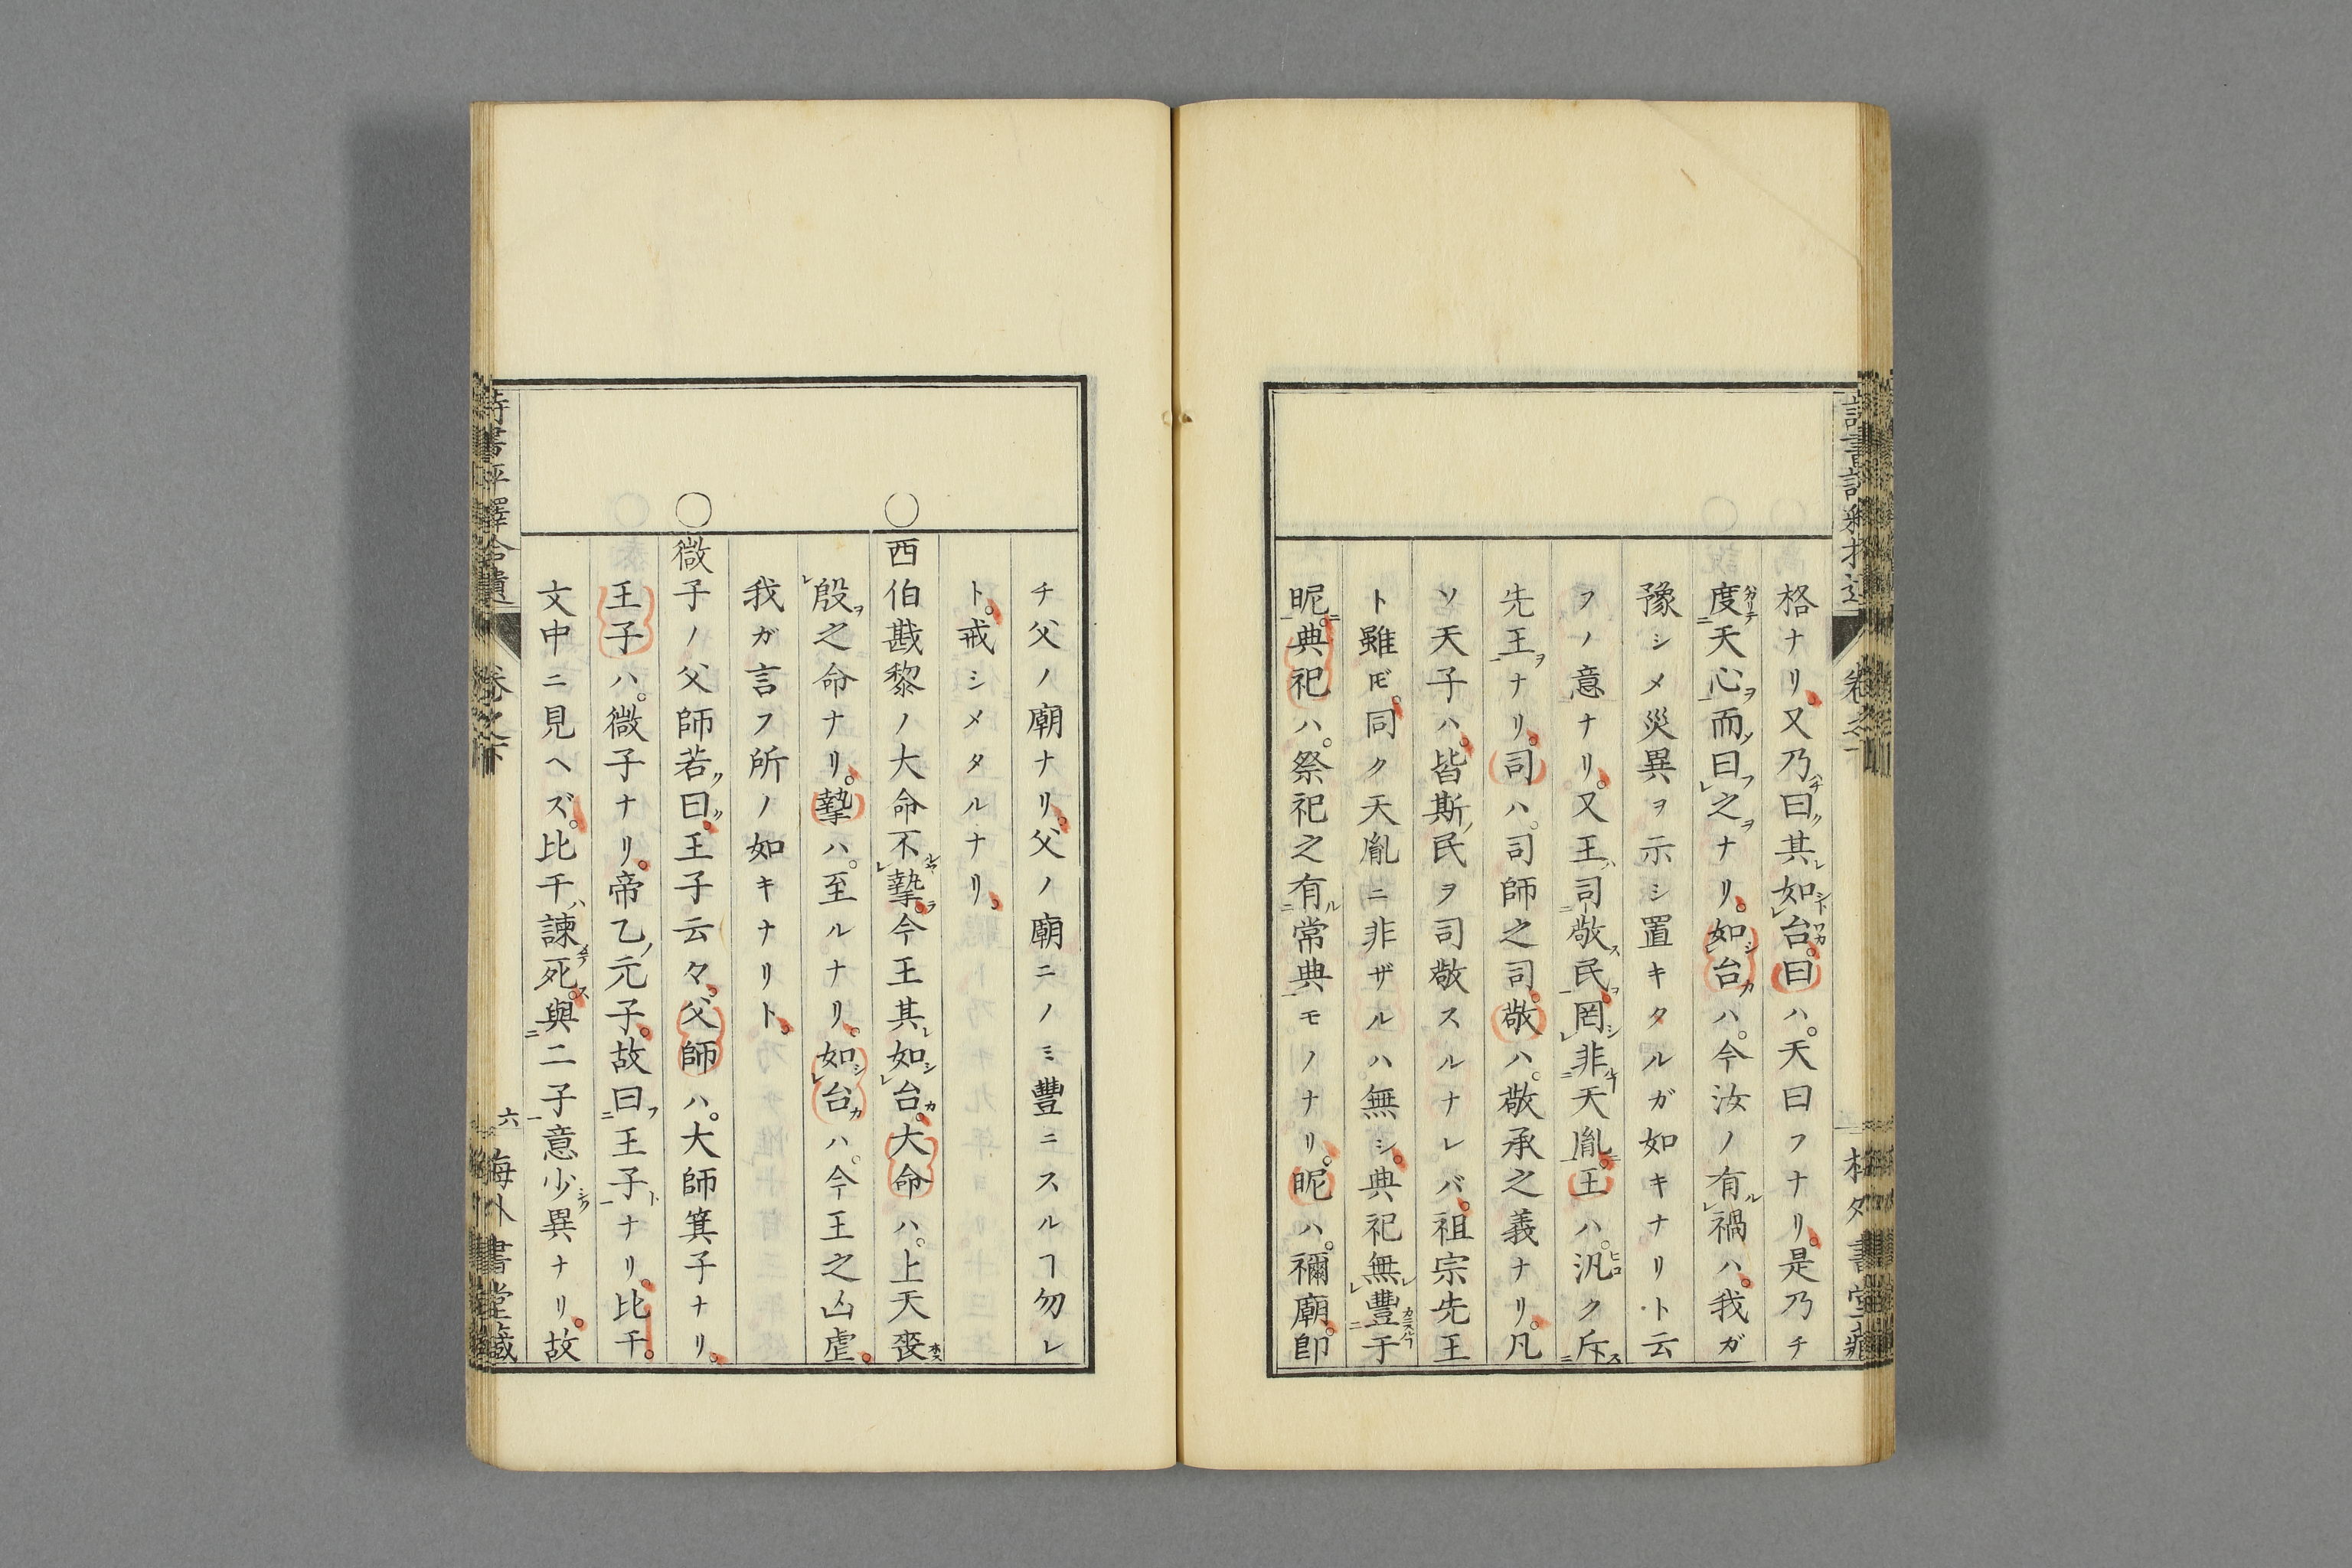 格ナリ。又乃曰其如台。曰ハ。天曰フナリ。是乃チ
度天心而曰之ナリ。如台ハ。今汝ノ有禍ハ。我ガ
豫シメ災異ヲ示シ置キタルガ如キナリト云
フノ意ナリ。又王司敬民罔非天胤。王ハ。汎ク斥
先王ナリ。司ハ。司師之司。敬ハ。敬承之義ナリ。凡
ソ天子ハ。皆斯民ヲ司敬スルナレバ。祖宗先王
ト雖𪜈。同ク天胤ニ非ザルハ無シ。典祀無豐于
昵。典祀ハ。祭祀之有常典モノナリ。昵ハ。禰廟。卽
チ父ノ廟ナリ。父ノ廟ニノミ豐ニスルヿ勿レ
ト。戒シメタルナリ。
○西伯戡黎ノ大命不摯。今王其如台。大命ハ。上天喪
殷之命ナリ。摯ハ。至ルナリ。如台ハ。今王之凶虐。
我ガ言フ所ノ如キナリト。
○微子ノ父師若曰。王子云々。父師ハ。大師箕子ナリ。
王子ハ。微子ナリ。帝乙元子。故曰王子ナリ。比干。
文中ニ見ヘズ。比干諫死。與二子意少異ナリ。故
卷之下
六